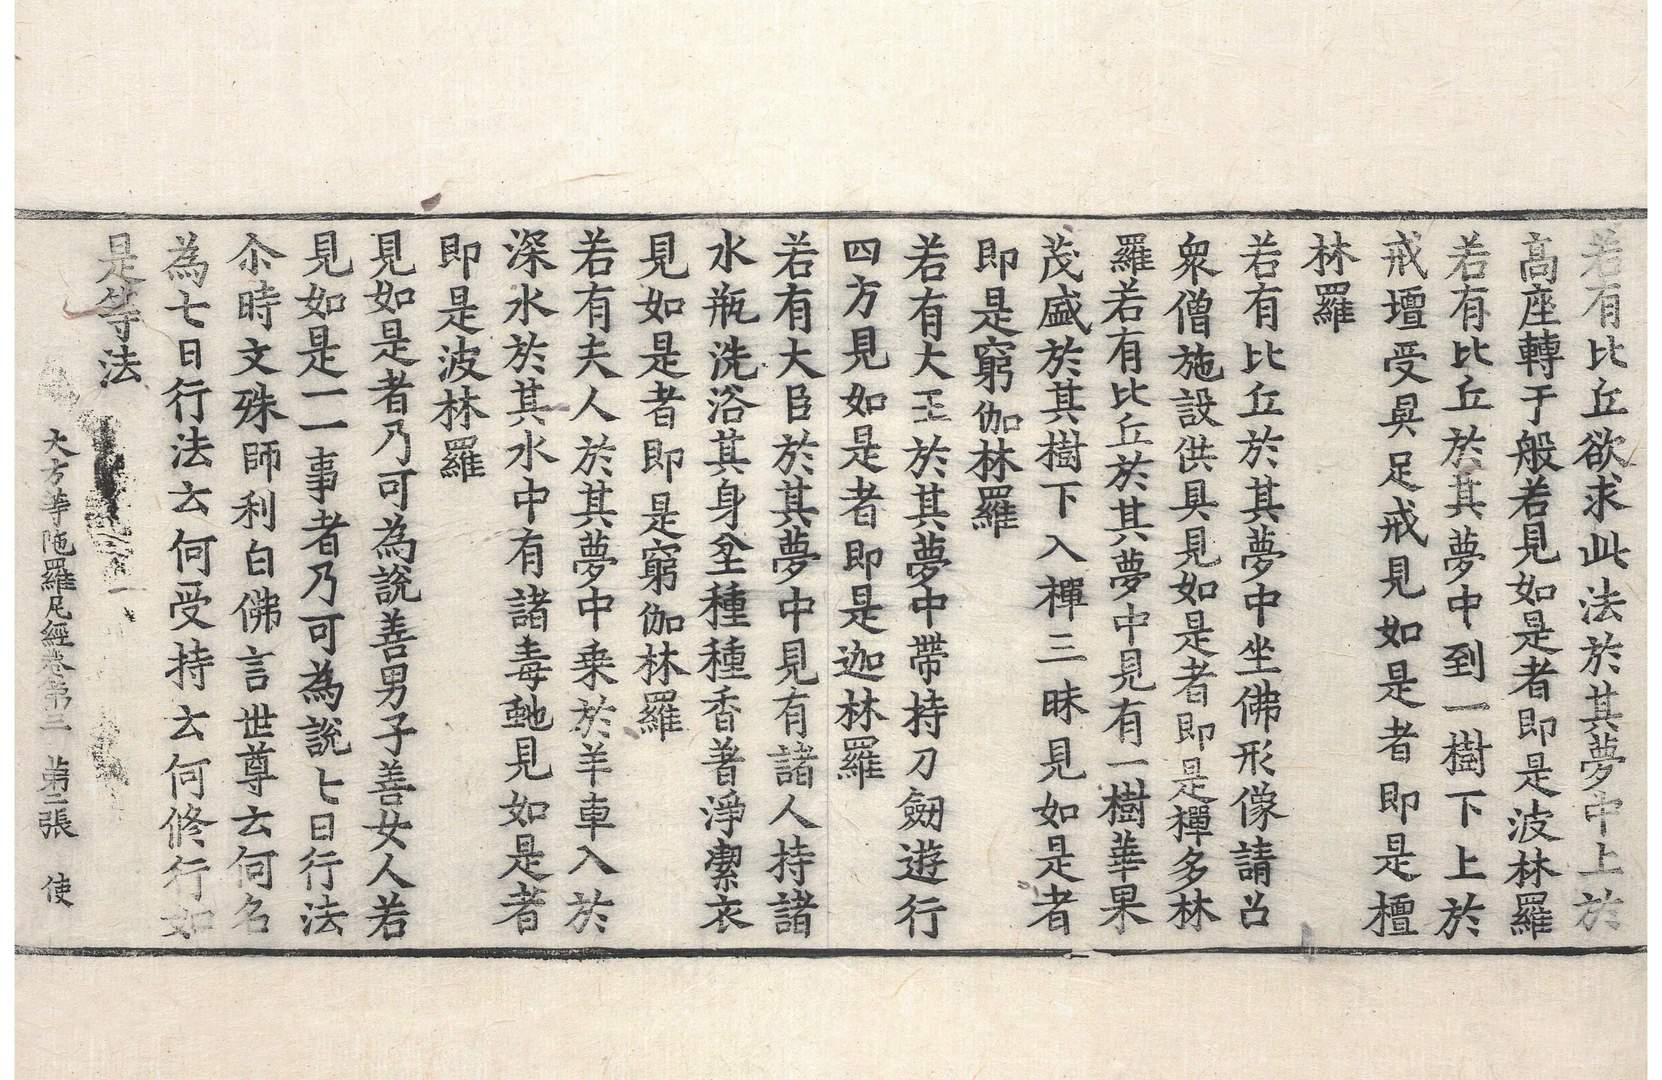 若有比丘欲求此法於其夢中上於
高座轉于般若見如是者即是波林羅
若有比丘於其夢中到一樹下上於
戒壇受具足戒見如是者即是檀
林羅
若有比丘於其夢中坐佛形像請召
衆僧施設供具見如是者即是禪多林
羅若有比丘於其夢中見有一樹華果
茂盛於其樹下入禪三昧見如是者
即是窮伽林羅
若有大王於其夢中帶持刀劒遊行
四方見如是者即是迦林羅
若有大臣於其夢中見有諸人持諸
水瓶洗浴其身坌種種香著淨潔衣
見如是者即是窮伽林羅
若有夫人於其夢中乗於羊車入於
深水於其水中有諸毒虵見如是者
即是波林羅
見如是者乃可為說善男子善女人若
見如是一一事者乃可為說七日行法
尒時文殊師利白佛言世尊云何名
為七日行法云何受持云何修行如
是等法
大方等陁羅尼經卷第三 第二張 使